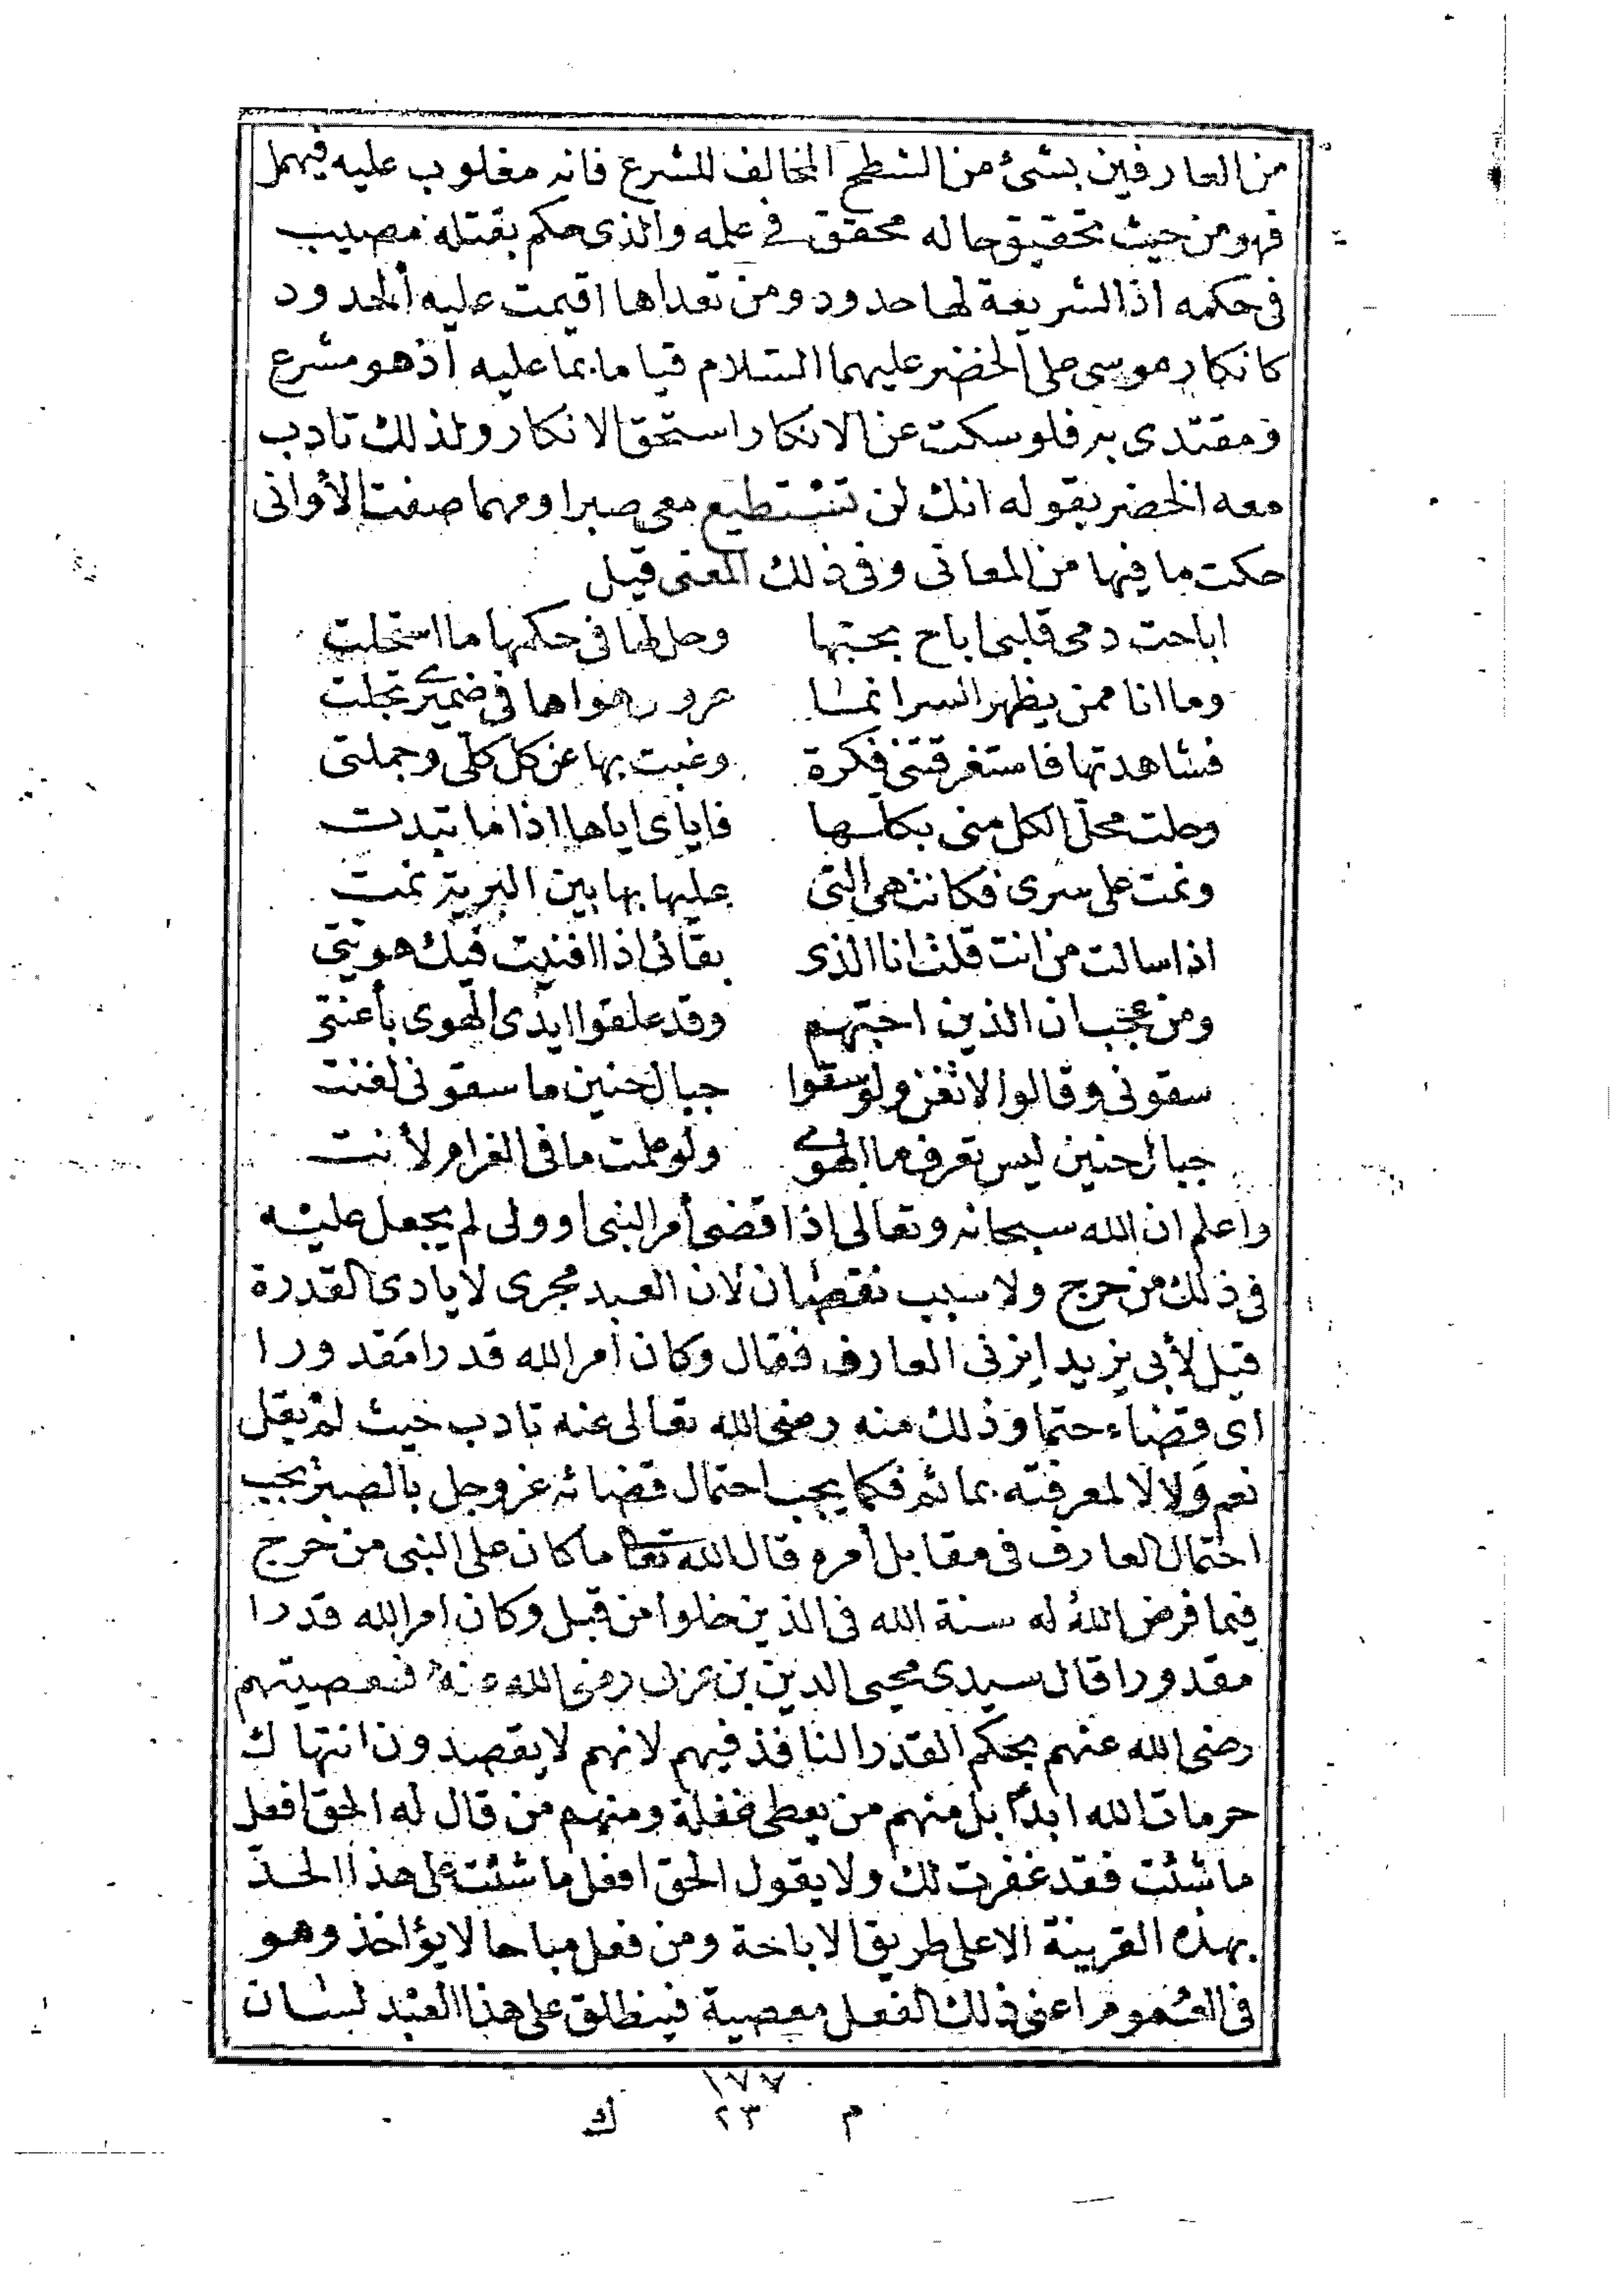 من العارفين بشئ من الشطح المخالف للشرع فانه مغلوب عليه فيهمل
فهو من حيث تحقيق حاله محقق في علمه والذى حكم بقتله مصيب
فى حكمه اذ الشريعة لها حدود ومن تعداها اقيمت عليه الحدود
كانكار موسى على الخضر عليهما السلام قياما بما عليه اذ هو مشرع
ومقتدى به فلو سكت عن الانكار استحق الانكار ولذلك تادب
معه الخضر بقوله انك لن تستطيع معى صبرا ومهما صفت الأوانى
حكت ما فيها من المعانى وفى ذلك المعنى قيل
اباحت دمى قلبى اباح بحبتها وحل لها فى حكمها ما استحلت
وما انا ممن يظهر السر انما عرور هواها فى ضميرى تجلت
فشاهدتها فاستغرقتنى فكرة وغبت بها عن كل كلّى وجملتى
وحلت محلّ الكل منى بكلها فاياى اياها اذا ما تبدت
ونمت على سرى فكانت هى التى عليها بها بين البرية نمت
اذا سالت من انت قلت انا الذى بقائى اذا افنيت فيك هويتى
ومن عجب ان الذين احبتهم وقد علقوا ايدى الهوى بأعنتى
سقونى وقالوا لا تغن ولو سقوا جبال حنين ما سقونى لغنت
جبال حنين ليس تعرف ما الهوى ولو علمت ما فى الغرام لأنت
واعلم ان الله سبحانه وتعالى اذا قضى أمرا لنبى او ولى لم يجعل عليه
فى ذلك من حرج ولا سبب نقصان لان العبد مجرى لايادى القدرة
قيل لأبى يزيد ايزنى العارف فقال وكان أمر الله قدرا مقدورا
اى قضاء حتما وذلك منه رضى الله تعالى عنه تادب حيث لم يقل
نعم ولا لا لمعرفته بما ثم فكما يجب احتمال قضائه عز وجل بالصبر يجب
احتمال العارف فى مقابل أمره قال الله تعا ما كان على النبى من حرج
فيما فرض الله له سنة الله فى الذين خلوا من قبل وكان امر الله قدرا
مقدورا قال سيدى محيى الدين بن عربى رضى الله عنه فمعصيتهم
رضى الله عنهم بحكم القدر النافذ فيهم لانهم لا يقصدون انتهاك
حرمات الله ابدًا بل منهم من يعطى غفلة ومنهم من قال له الحق افعل
ما شئت فقد غفرت لك ولا يقول الحق افعل ما شئت على هذا الحدّ
بهذه القرينة الا على طريق الاباحة ومن فعل مباحا لا يؤاخذ وهو
فى العموم اعنى ذلك الفعل معصية فينطلق على هذا العبد لسان
١٧٧
م ٢٣ ك